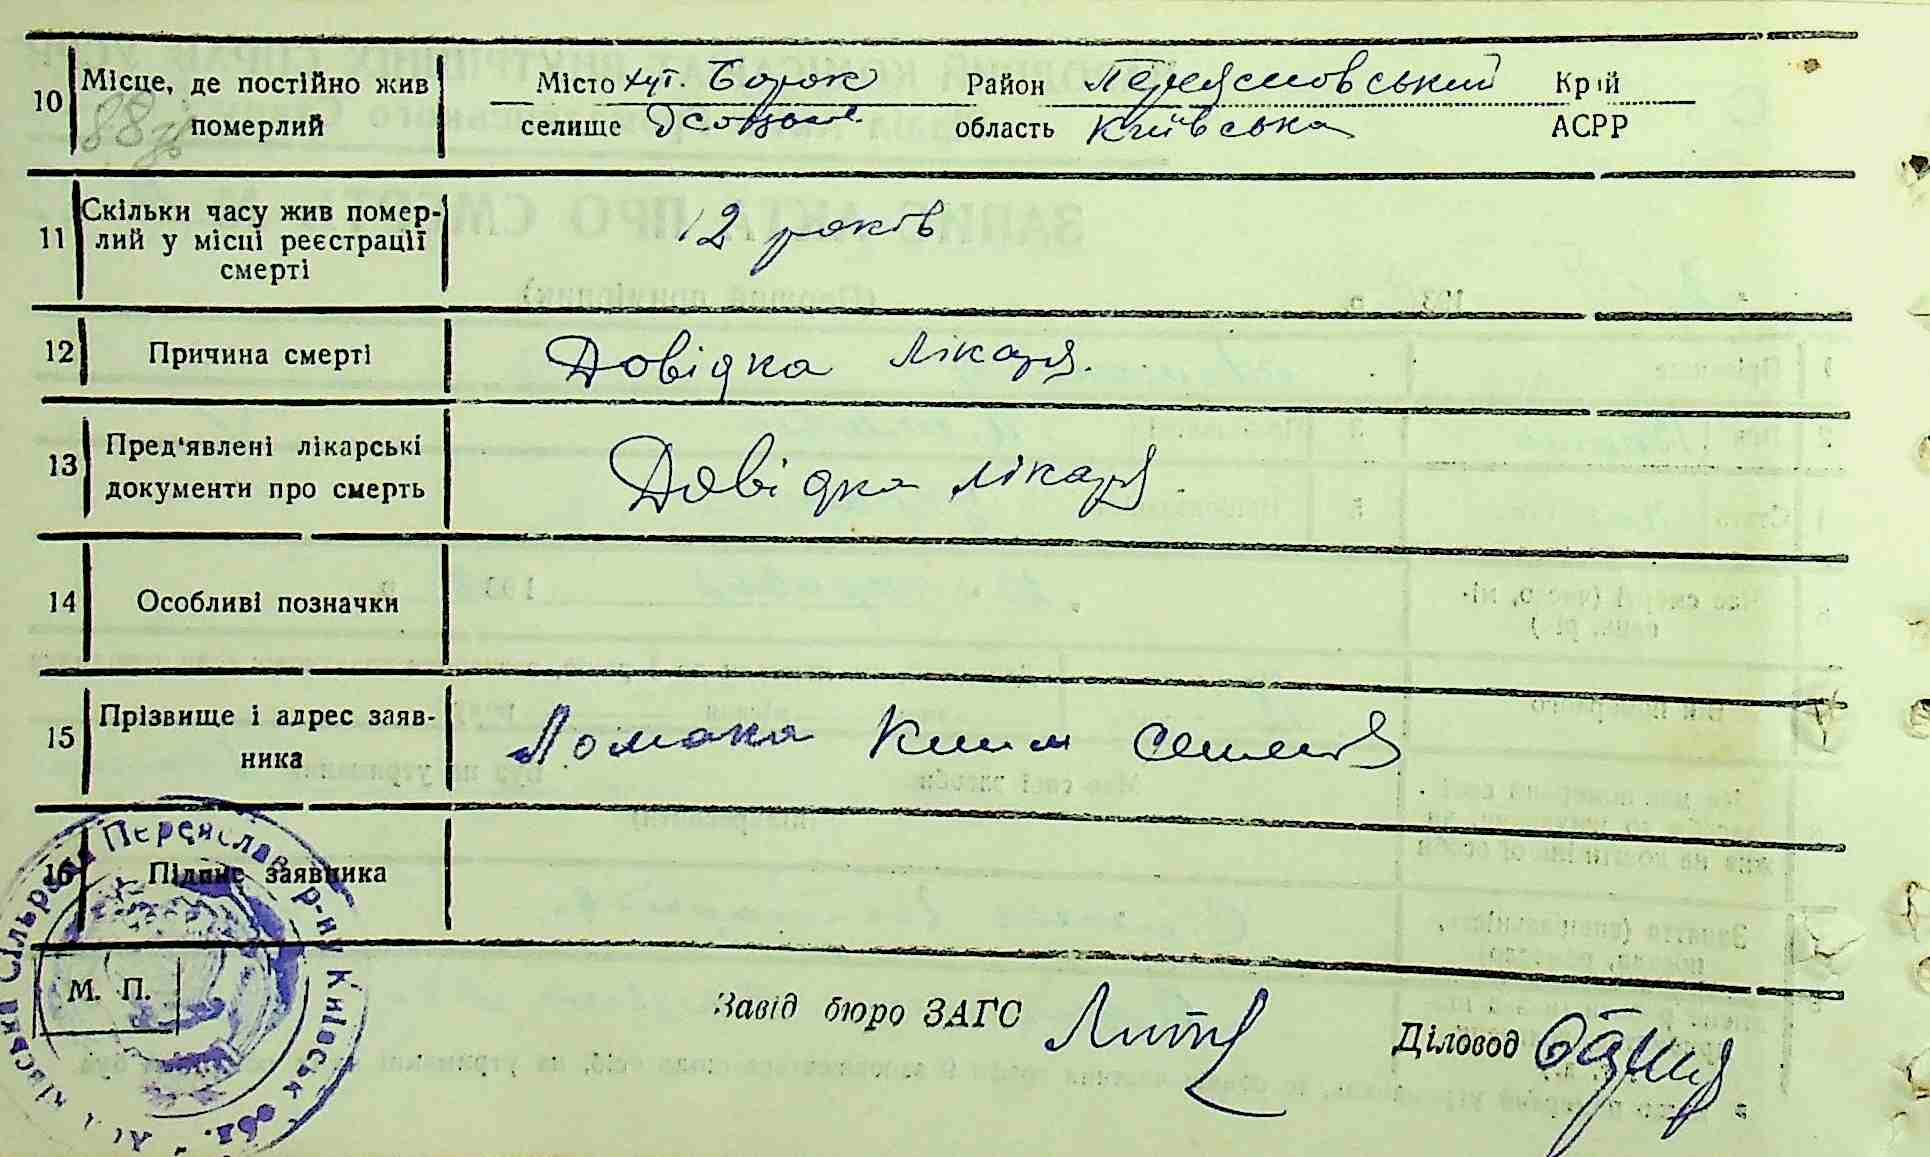 10 Місце, де постійно жив Місто хут. Борок Район Переяславський Край
померлий селище область Київська АСРР
88
11 Скільки часу жив помер-
лий у місці реєстрації
смерті
12 років
12 Причина смерті Довідка лікаря.
13 Пред'явлені лікарські
документи про смерть
Довідка лікаря
14 Особливі позначки
15 Прізвище і адрес заяв-
ника
Ломака Семенов
16 Підпис заявника
Сільрада Переяслав р-ну Київськ обл.
М. П.
Завід бюро ЗАГС
Діловод